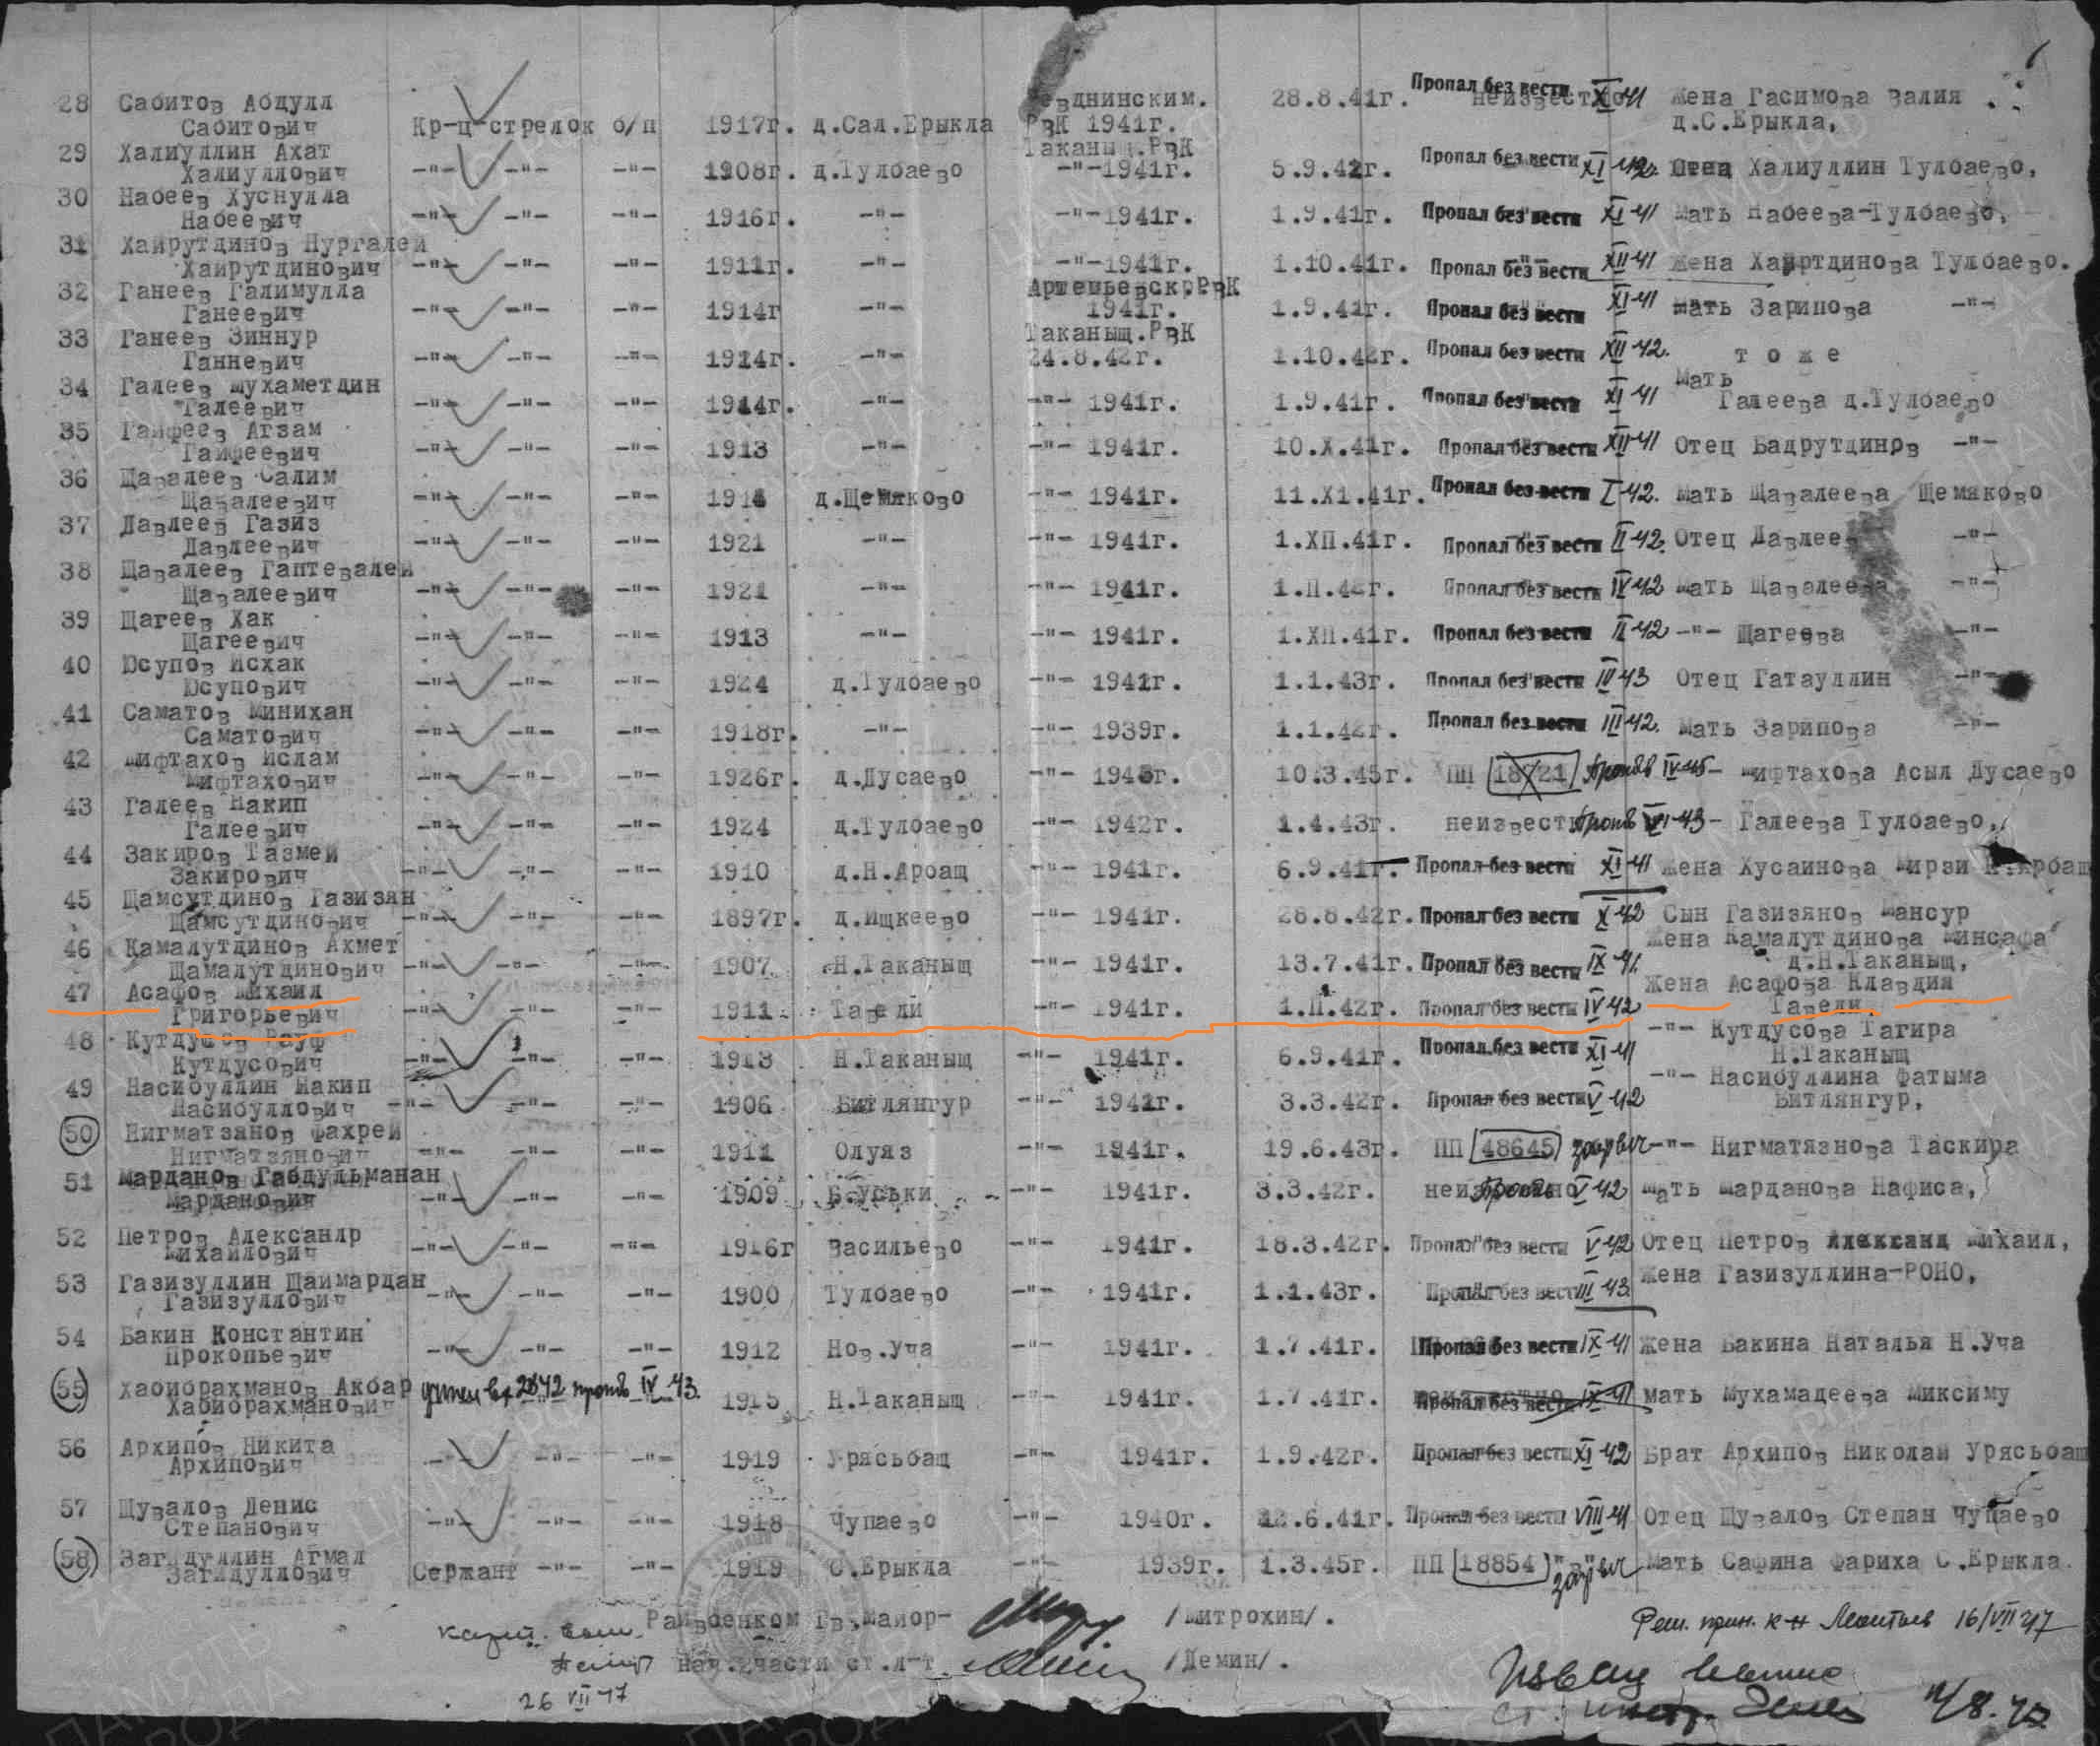 28 Сабитов Абдулл Сабитович Кр-ц-стрелок б/п 1917г. д.Сал.Ерыкла РвК 1941г. 28.8.41г. Пропал без вести XI 41 Жена Гасимова Валия д.С.Ерыкла,
29 Халиуллин Ахат Халиуллович -"- -"- -"- 1908г. д.Тулбаево Таканыщ.РвК -"-1941г. 5.9.42г. Пропал без вести XI 42. Отец Халиуллин Тулбаево,
30 Набеев Хуснулла Набеевич -"- -"- -"- 1916г. -"- -"-1941г. 1.9.41г. Пропал без вести XI 41 Мать Набеева-Тулбаево,
31 Хайрутдинов Нургалей Хайрутдинович -"- -"- -"- 1911г. -"- -"-1941г. 1.10.41г. Пропал без вести XII 41 Жена Хайртдинова Тулбаево.
32 Ганеев Галимулла Ганеевич -"- -"- -"- 1914г -"- 1941г. 1.9.41г. Пропал без вести XI 41 Мать Зарипова -"-
33 Ганеев Зиннур Ганневич -"- -"- -"- 1914г. -"- Таканыщ.РвК 24.8.42г. 1.10.42г. Пропал без вести XII 42. т о ж е
34 Галеев Мухаметдин Галеевич -"- -"- -"- 1914г. -"- -"- 1941г. 1.9.41г. Пропал без вести XI 41 Мать Галеева д.Тулбаево
35 Гайфеев Агзам Гайфеевич -"- -"- -"- 1913 -"- -"- 1941г. 10.X.41г. Пропал без вести XII 41 Отец Бадрутдинов -"-
36 Щавалеев Салим Щавалеевич -"- -"- -"- д.Щемяково -"- 1941г. 11.XI.41г. Пропал без вести I 42. Мать Щавалеева Щемяково
37 Давлеев Газиз Давлеевич -"- -"- -"- 1921 -"- -"- 1941г. 1.XП.41г. Пропал без вести II 42. Отец Давлее -"-
38 Щавалеев Гаптевалей Щавалеевич -"- -"- -"- 1921 -"- -"- 1941г. 1.П.42г. Пропал без вести IV 42 Мать Щавалеева -"-
39 Щагеев Хак Щагеевич -"- -"- -"- 1913 -"- -"- 1941г. 1.XП.41г. Пропал без вести II 42 -"- Щагеева -"-
40 Юсупов Исхак Юсупович -"- -"- -"- 1924 д.Тулбаево -"- 1941г. 1.1.43г. Пропал без вести III 43 Отец Гатауллин -"-
41 Саматов Минихан Саматович -"- -"- -"- 1918г. -"- -"- 1939г. 1.1.42г. Пропал без вести III 42. Мать Зарипова -"-
42 Мифтахов Ислам Мифтахович -"- -"- -"- 1926г. д.Дусаево -"- 10.3.45г. ПП 18721 IV 45 - Мифтахова Асыл Дусаево
43 Галеев Накип Галеевич -"- -"- -"- 1924 д.Тулбаево -"- 1942г. 1.4.43г. неизвестн VI 43 - Галеева Тулбаево,
44 Закиров Газмей Закирович -"- -"- -"- 1910 д.Н.Арбащ -"- 1941г. 6.9.41г. Пропал без вести XI 41 Жена Хусаинова Мирзи Н.Арбащ
45 Щамсутдинов Газизян Щамсутдинович -"- -"- -"- 1897г. д.Ищкеево -"- 1941г. 28.8.42г. Пропал без вести X 42 Сын Газизянов Мансур
46 Камалутдинов Ахмет Щамалутдинович -"- -"- -"- 1907 Н.Таканыщ -"- 1941г. 13.7.41г. Пропал без вести IX 41. Жена Камалутдинова Минсафа д.Н.Таканыщ,
47 Асафов Михаил Григорьевич -"- -"- -"- 1911 Тавели -"- 1941г. 1.П.42г. Пропал без вести IV 42 Жена Асафова Клавдия Тавели
48 Кутдусов Рауф Кутдусович -"- -"- -"- 1913 Н.Таканыщ -"- 1941г. 6.9.41г. Пропал без вести XI 41 -"- Кутдусова Тагира Н.Таканыщ
49 Насибуллин Накип Насибуллович -"- -"- -"- 1906 Битлянгур -"- 1941г. 3.3.42г. Пропал без вести V 42 -"- Насибуллина Фатыма Битлянгур,
50 Нигматзянов Фахрей Нигматзянович -"- -"- -"- 1911 Олуяз -"- 1941г. 19.6.43г. ПП 48645 -"- Нигматязнова Таскира
51 Марданов Габдульманан Марданович -"- -"- -"- 1909 -"- 1941г. 3.3.42г. V 42 Мать Марданова Нафиса,
52 Петров Александр Михайлович -"- -"- -"- 1916г Васильево -"- 1941г. 18.3.42г. Пропал без вести V 42 Отец Петров Александ Михаил,
53 Газизуллин Щаймардан Газизуллович -"- -"- -"- 1900 Тулбаево -"- 1941г. 1.1.43г. Пропал без вести III 43. Жена Газизуллина-РОНО,
54 Бакин Константин Прокопьевич -"- -"- -"- 1912 Нов.Уча -"- 1941г. 1.7.41г. Пропал без вести IX 41 Жена Бакина Наталья Н.Уча
55 Хабибрахманов Акбар Хабибрахманович IV 43. 1915 Н.Таканыщ -"- 1941г. 1.7.41г. Пропал без вести IX 41 Мать Мухамадеева Миксиму
56 Архипов Никита Архипович -"- -"- -"- 1919 Урясьбащ -"- 1941г. 1.9.42г. Пропал без вести XI 42 Брат Архипов Николай Урясьбащ
57 Щувалов Денис Степанович -"- -"- -"- 1918 Чупаево -"- 1940г. 22.6.41г. Пропал без вести VIII 41 Отец Щувалов Степан Чупаево
58 Загидуллин Агмал Загидуллович Сержант -"- -"- 1919 С.Ерыкла -"- 1939г. 1.3.45г. ПП 18854 Мать Сафина Фариха С.Ерыкла.
Райвоенком Гв.Майор- /Митрохин/.
Нач.2части ст.л-т /Демин/.
26 VII 47
16/VII 47